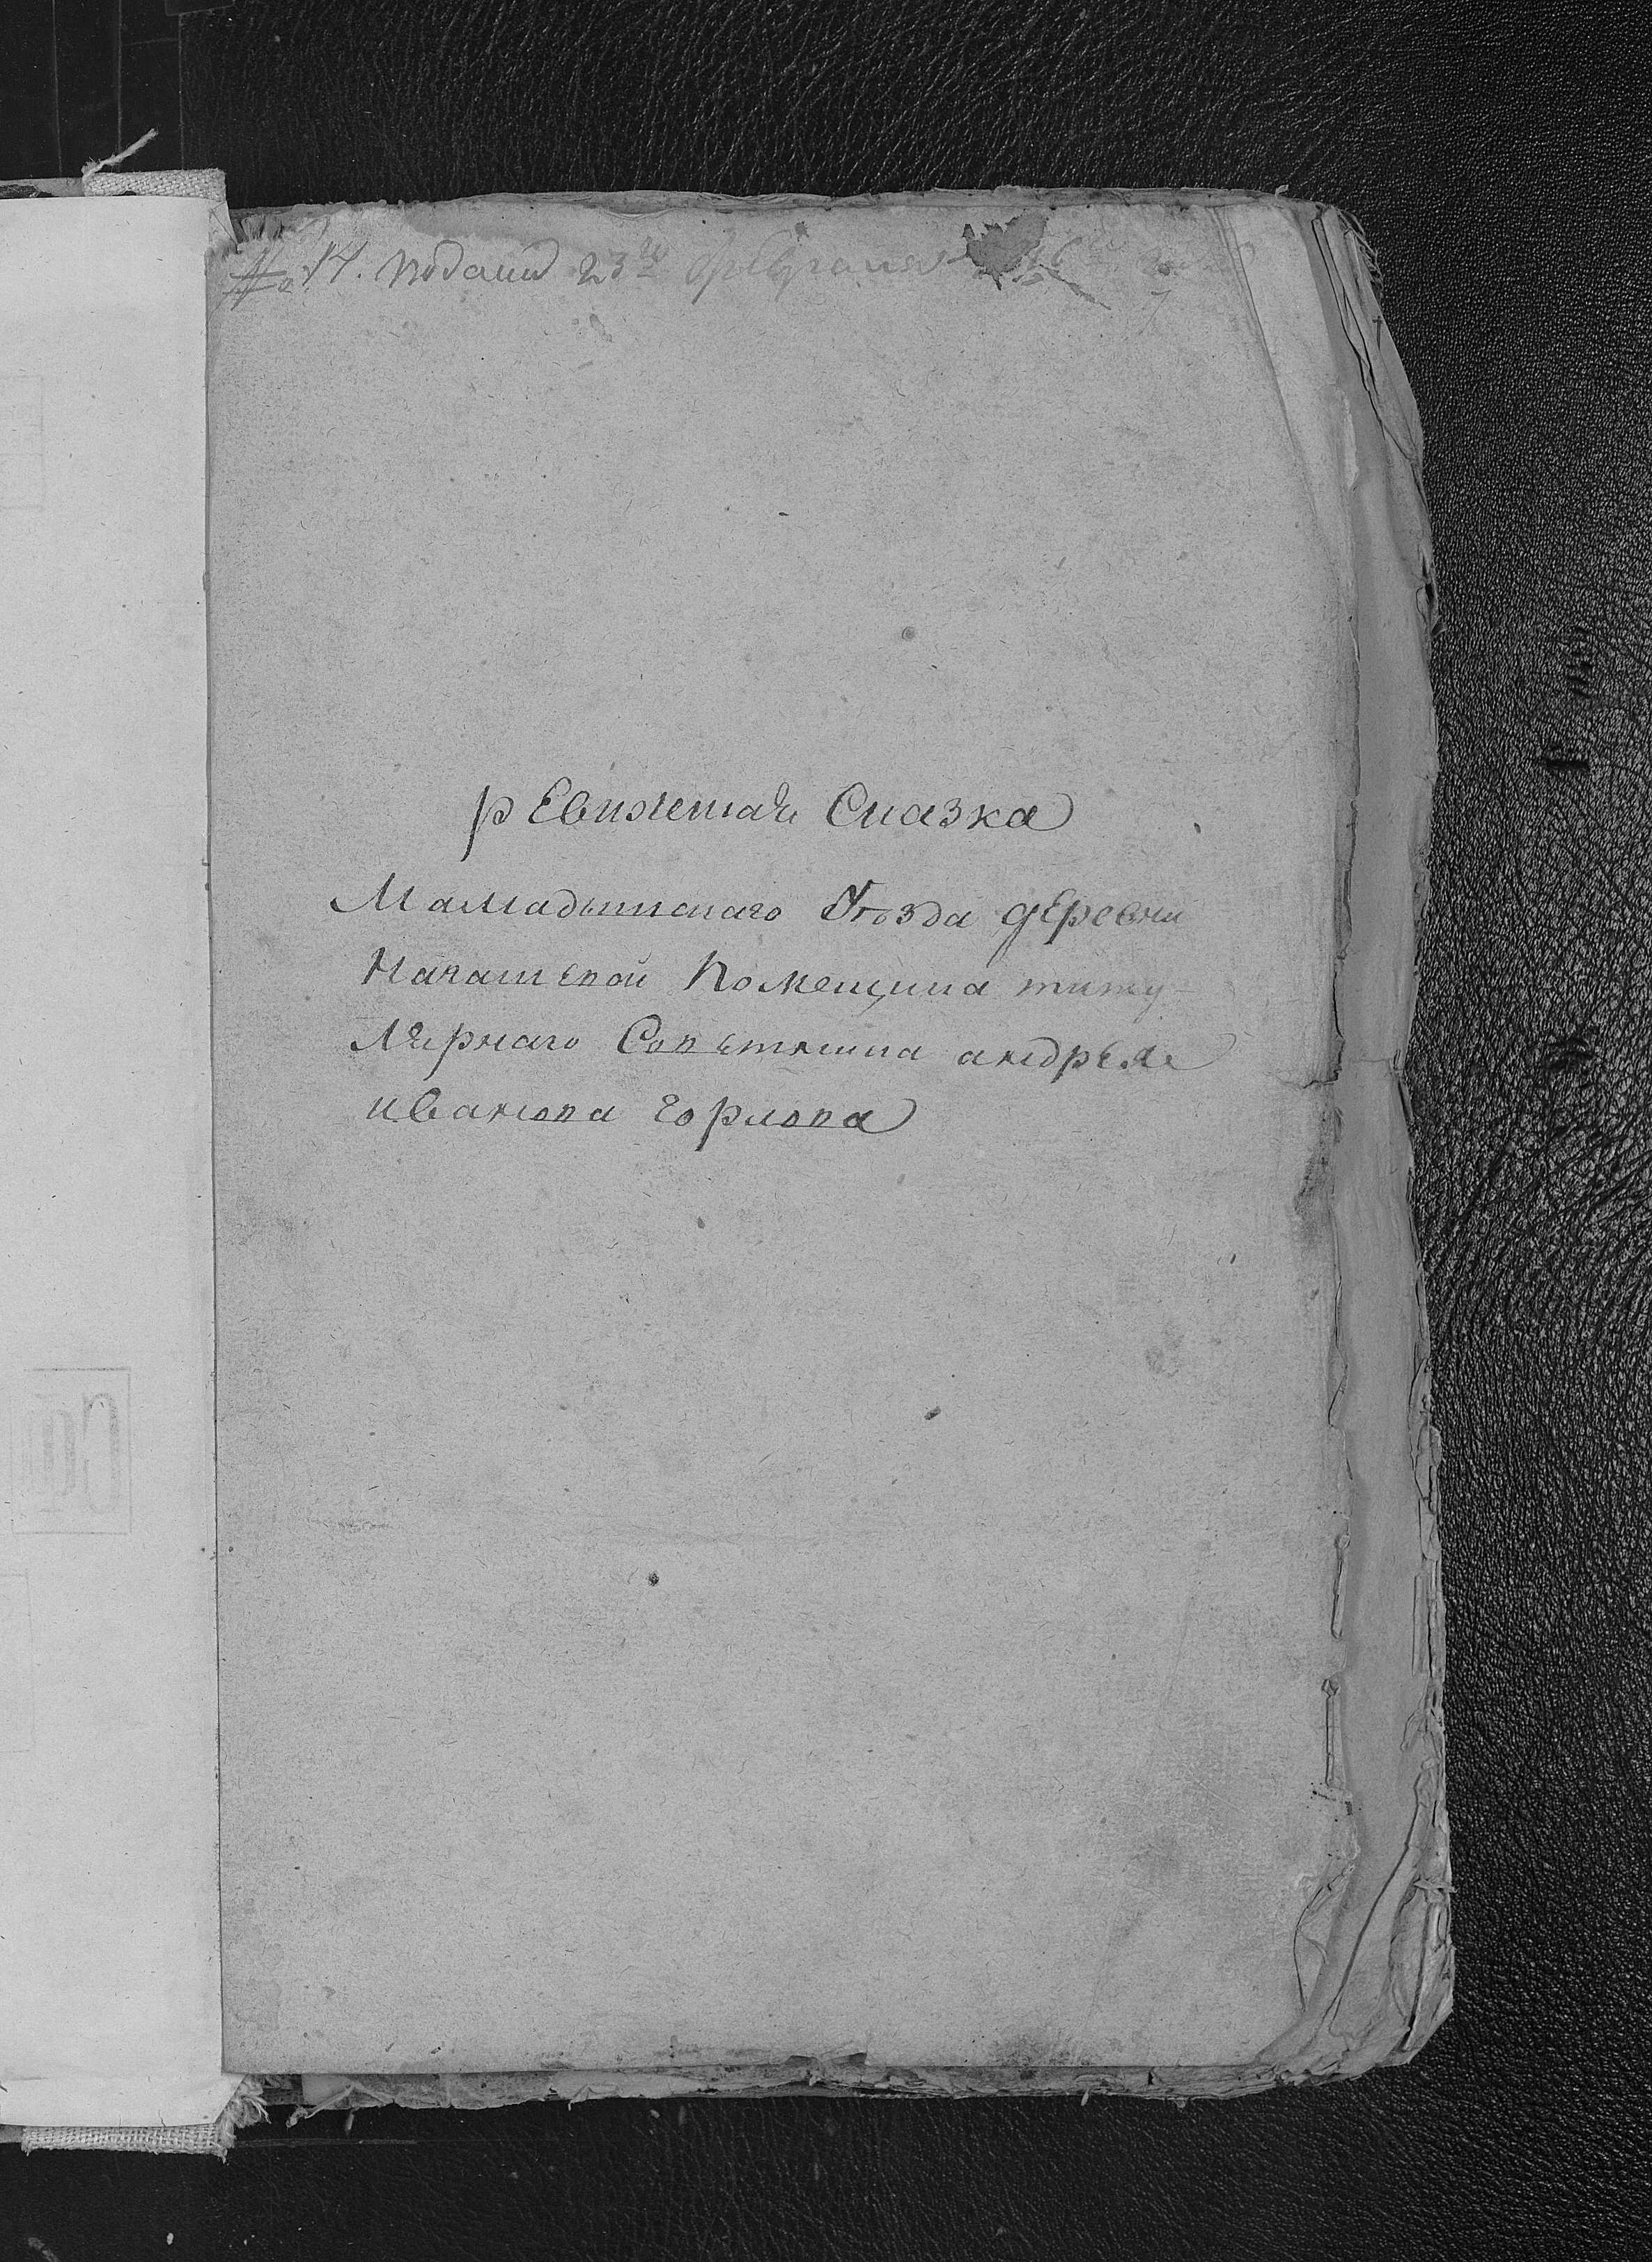 № 14. подана 23го февраля 1816го года
ревижская Сказка
Мамадышскаго Уѣзда деревни
Качашевой Помещика титу-
лярнаго Советника андрея
иванова горлова